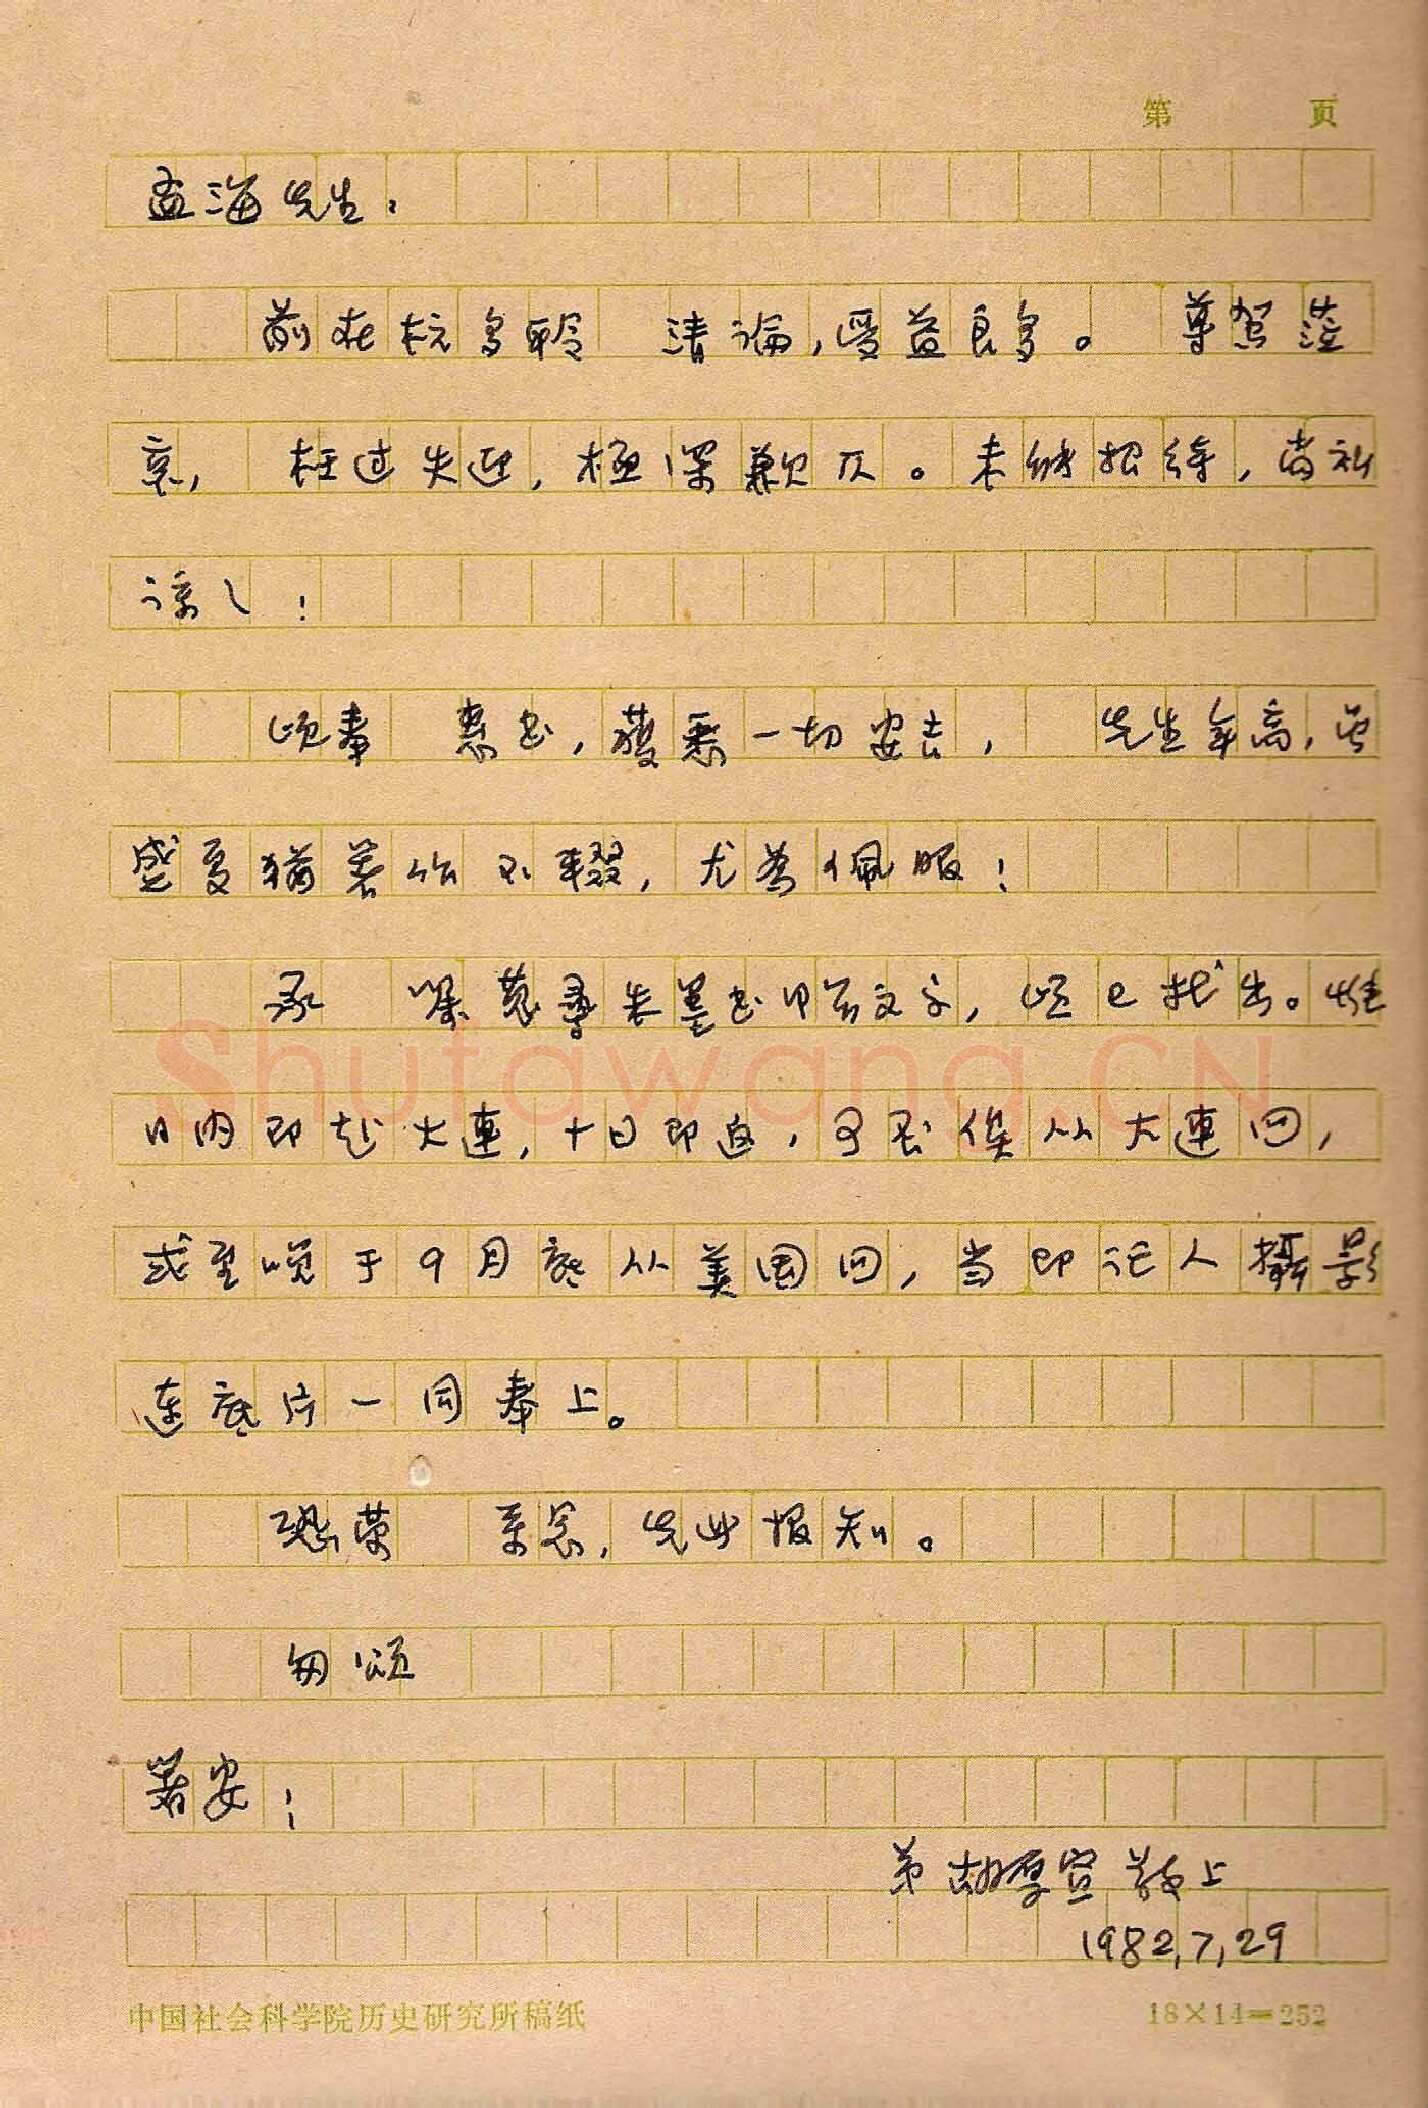 第 页
孟海先生：
前在杭多聆 清论，受益良多。 尊驾莅
京， 枉过失迎，极深歉仄。未能招待，尚祈
谅之！
顷奉 惠书，藉悉一切安吉， 先生年高，当
盛夏犹著作不辍，尤为佩服！
承 嘱觅寻朱墨书甲骨文字，顷已找出。惟
日内即赴大連，十日即返，可否俟从大連回，
或至晚于9月底从美国回，当即记人攝影
连底片一同奉上。
恐荣 系念，先此报知。
匆颂
著安！
弟 胡厚宣 敬上
1982,7,29
中国社会科学院历史研究所稿纸
18×14=252
Shufawang.CN